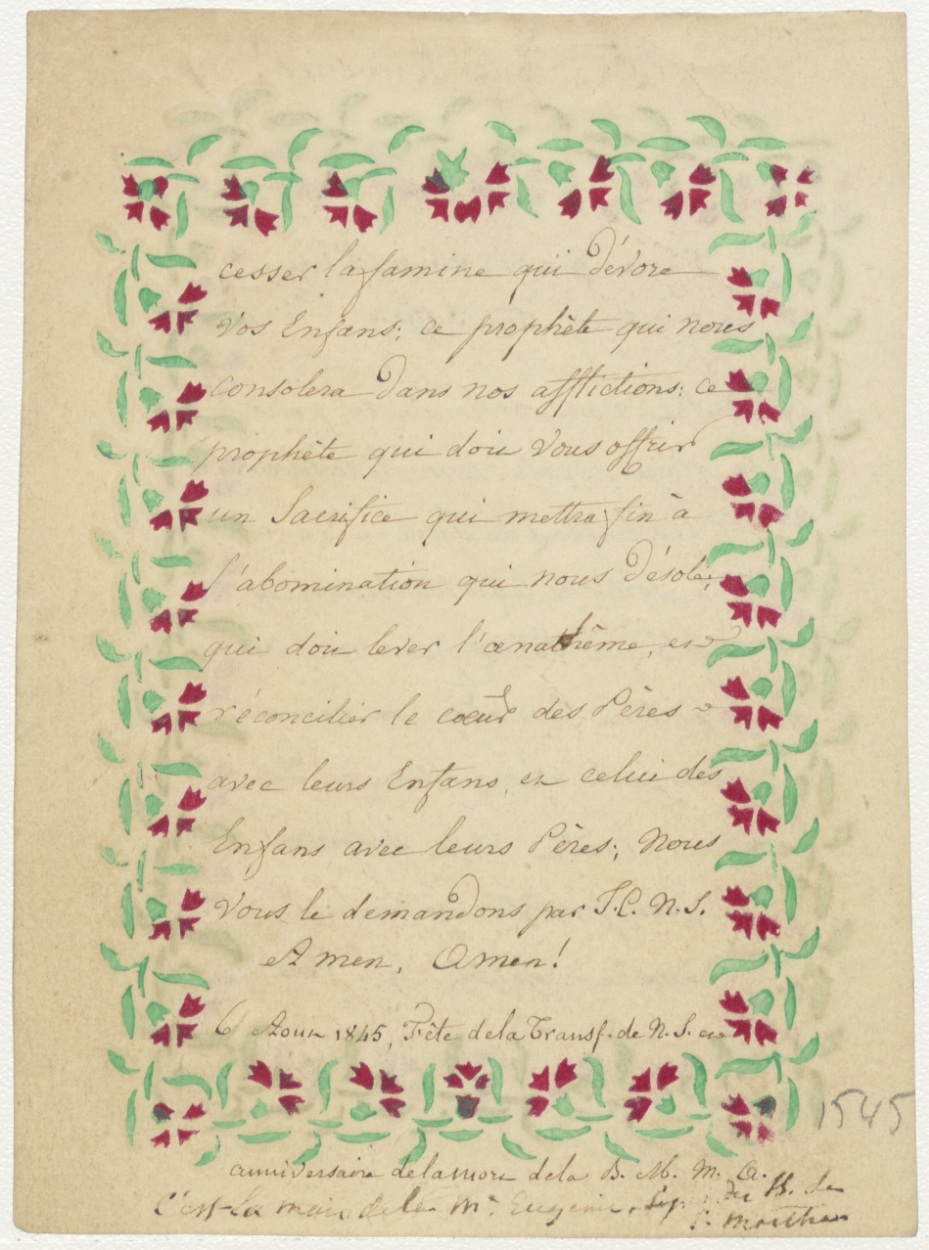 cesser la famine qui dévore
vos Enfans: ce prophète qui nous
consolera dans nos afflictions: ce
prophète qui doit vous offrir
un Sacrifice qui mettra fin à
l'abomination qui nous désole;
qui doit lever l'anathême, et
réconcilier le cœur des Pères
avec leurs Enfans, et celui des
Enfans avec leurs Pères; Nous
vous le demandons par J.C. N.S.
Amen, Amen!
6 Aout 1845, Fête de la Transf. de N.S. et
anniversaire de la mort de la B. M. M. A.
C'est la main de la Mè Eugénie, Sup. du H. de
1545